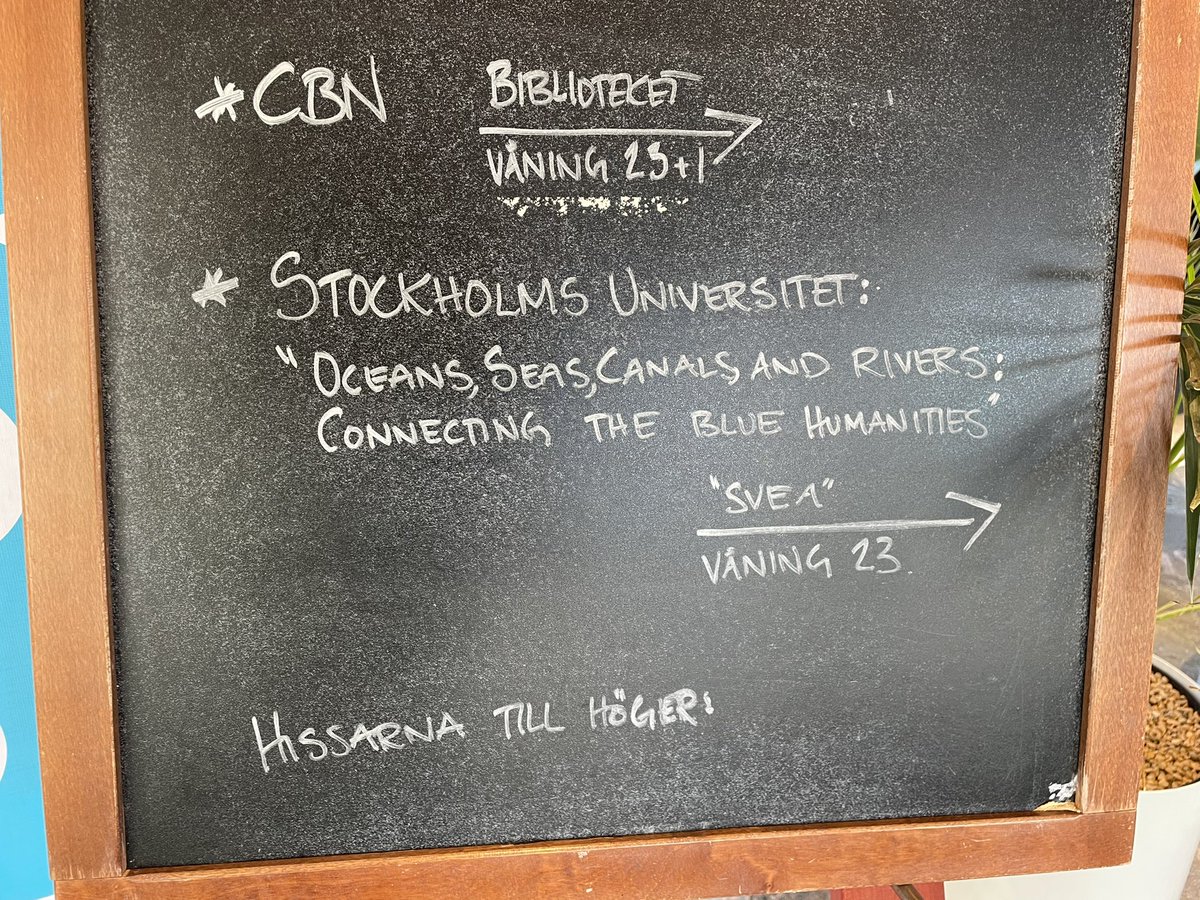 * CBN BIBLIOTEKET
VÅNING 23+1
* STOCKHOLMS UNIVERSITET:
"OCEANS, SEAS, CANALS, AND RIVERS:
CONNECTING THE BLUE HUMANITIES"
"SVEA"
VÅNING 23
HISSARNA TILL HÖGER: